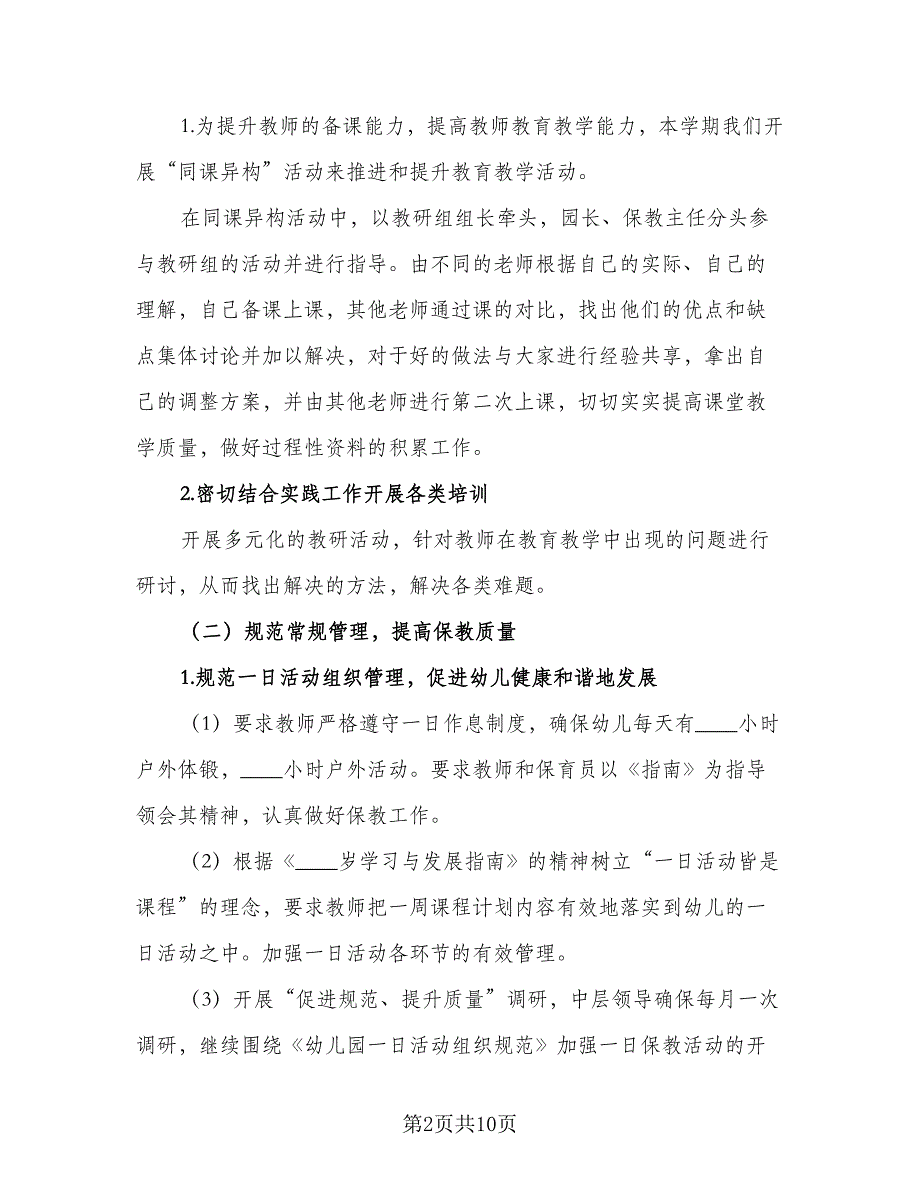 1.为提升教师的备课能力，提高教师教育教学能力，本学期我们开
展“同课异构”活动来推进和提升教育教学活动。
在同课异构活动中，以教研组组长牵头，园长、保教主任分头参
与教研组的活动并进行指导。由不同的老师根据自己的实际、自己的
理解，自己备课上课，其他老师通过课的对比，找出他们的优点和缺
点集体讨论并加以解决，对于好的做法与大家进行经验共享，拿出自
己的调整方案，并由其他老师进行第二次上课，切切实实提高课堂教
学质量，做好过程性资料的积累工作。
2.密切结合实践工作开展各类培训
开展多元化的教研活动，针对教师在教育教学中出现的问题进行
研讨，从而找出解决的方法，解决各类难题。
（二）规范常规管理，提高保教质量
1.规范一日活动组织管理，促进幼儿健康和谐地发展
（1）要求教师严格遵守一日作息制度，确保幼儿每天有____小时
户外体锻，____小时户外活动。要求教师和保育员以《指南》为指导
领会其精神，认真做好保教工作。
（2）根据《____岁学习与发展指南》的精神树立“一日活动皆是
课程”的理念，要求教师把一周课程计划内容有效地落实到幼儿的一
日活动之中。加强一日活动各环节的有效管理。
（3）开展“促进规范、提升质量”调研，中层领导确保每月一次
调研，继续围绕《幼儿园一日活动组织规范》加强一日保教活动的开
第2页共10页